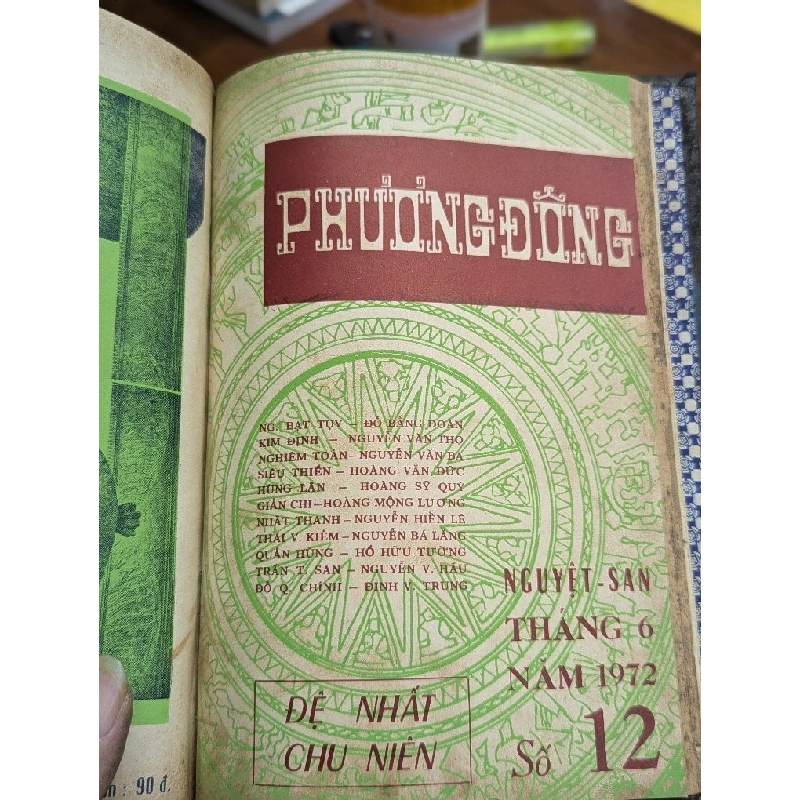 PHƯƠNG ĐÔNG
NG. BẠT TỤY — ĐỖ BẰNG ĐOÀN
KIM ĐỊNH — NGUYỄN VĂN THỌ
NGHIÊM TOẢN - NGUYỄN VĂN BA
SIÊU THIÊN — HOÀNG VĂN ĐỨC
HÙNG LÂN — HOÀNG SỸ QUÝ
GIẢN CHI — HOÀNG MỘNG LƯƠNG
NHẤT THANH — NGUYỄN HIẾN LÊ
THÁI V. KIỂM — NGUYỄN BÁ LĂNG
QUÂN HÙNG — HỒ HỮU TƯỜNG
TRẦN T. SAN — NGUYỄN V. HẦU
ĐỖ Q. CHÍNH — ĐINH V. TRUNG
NGUYỆT-SAN
THÁNG 6
NĂM 1972
ĐỆ NHẤT
CHU NIÊN
Số 12
: 90 đ.